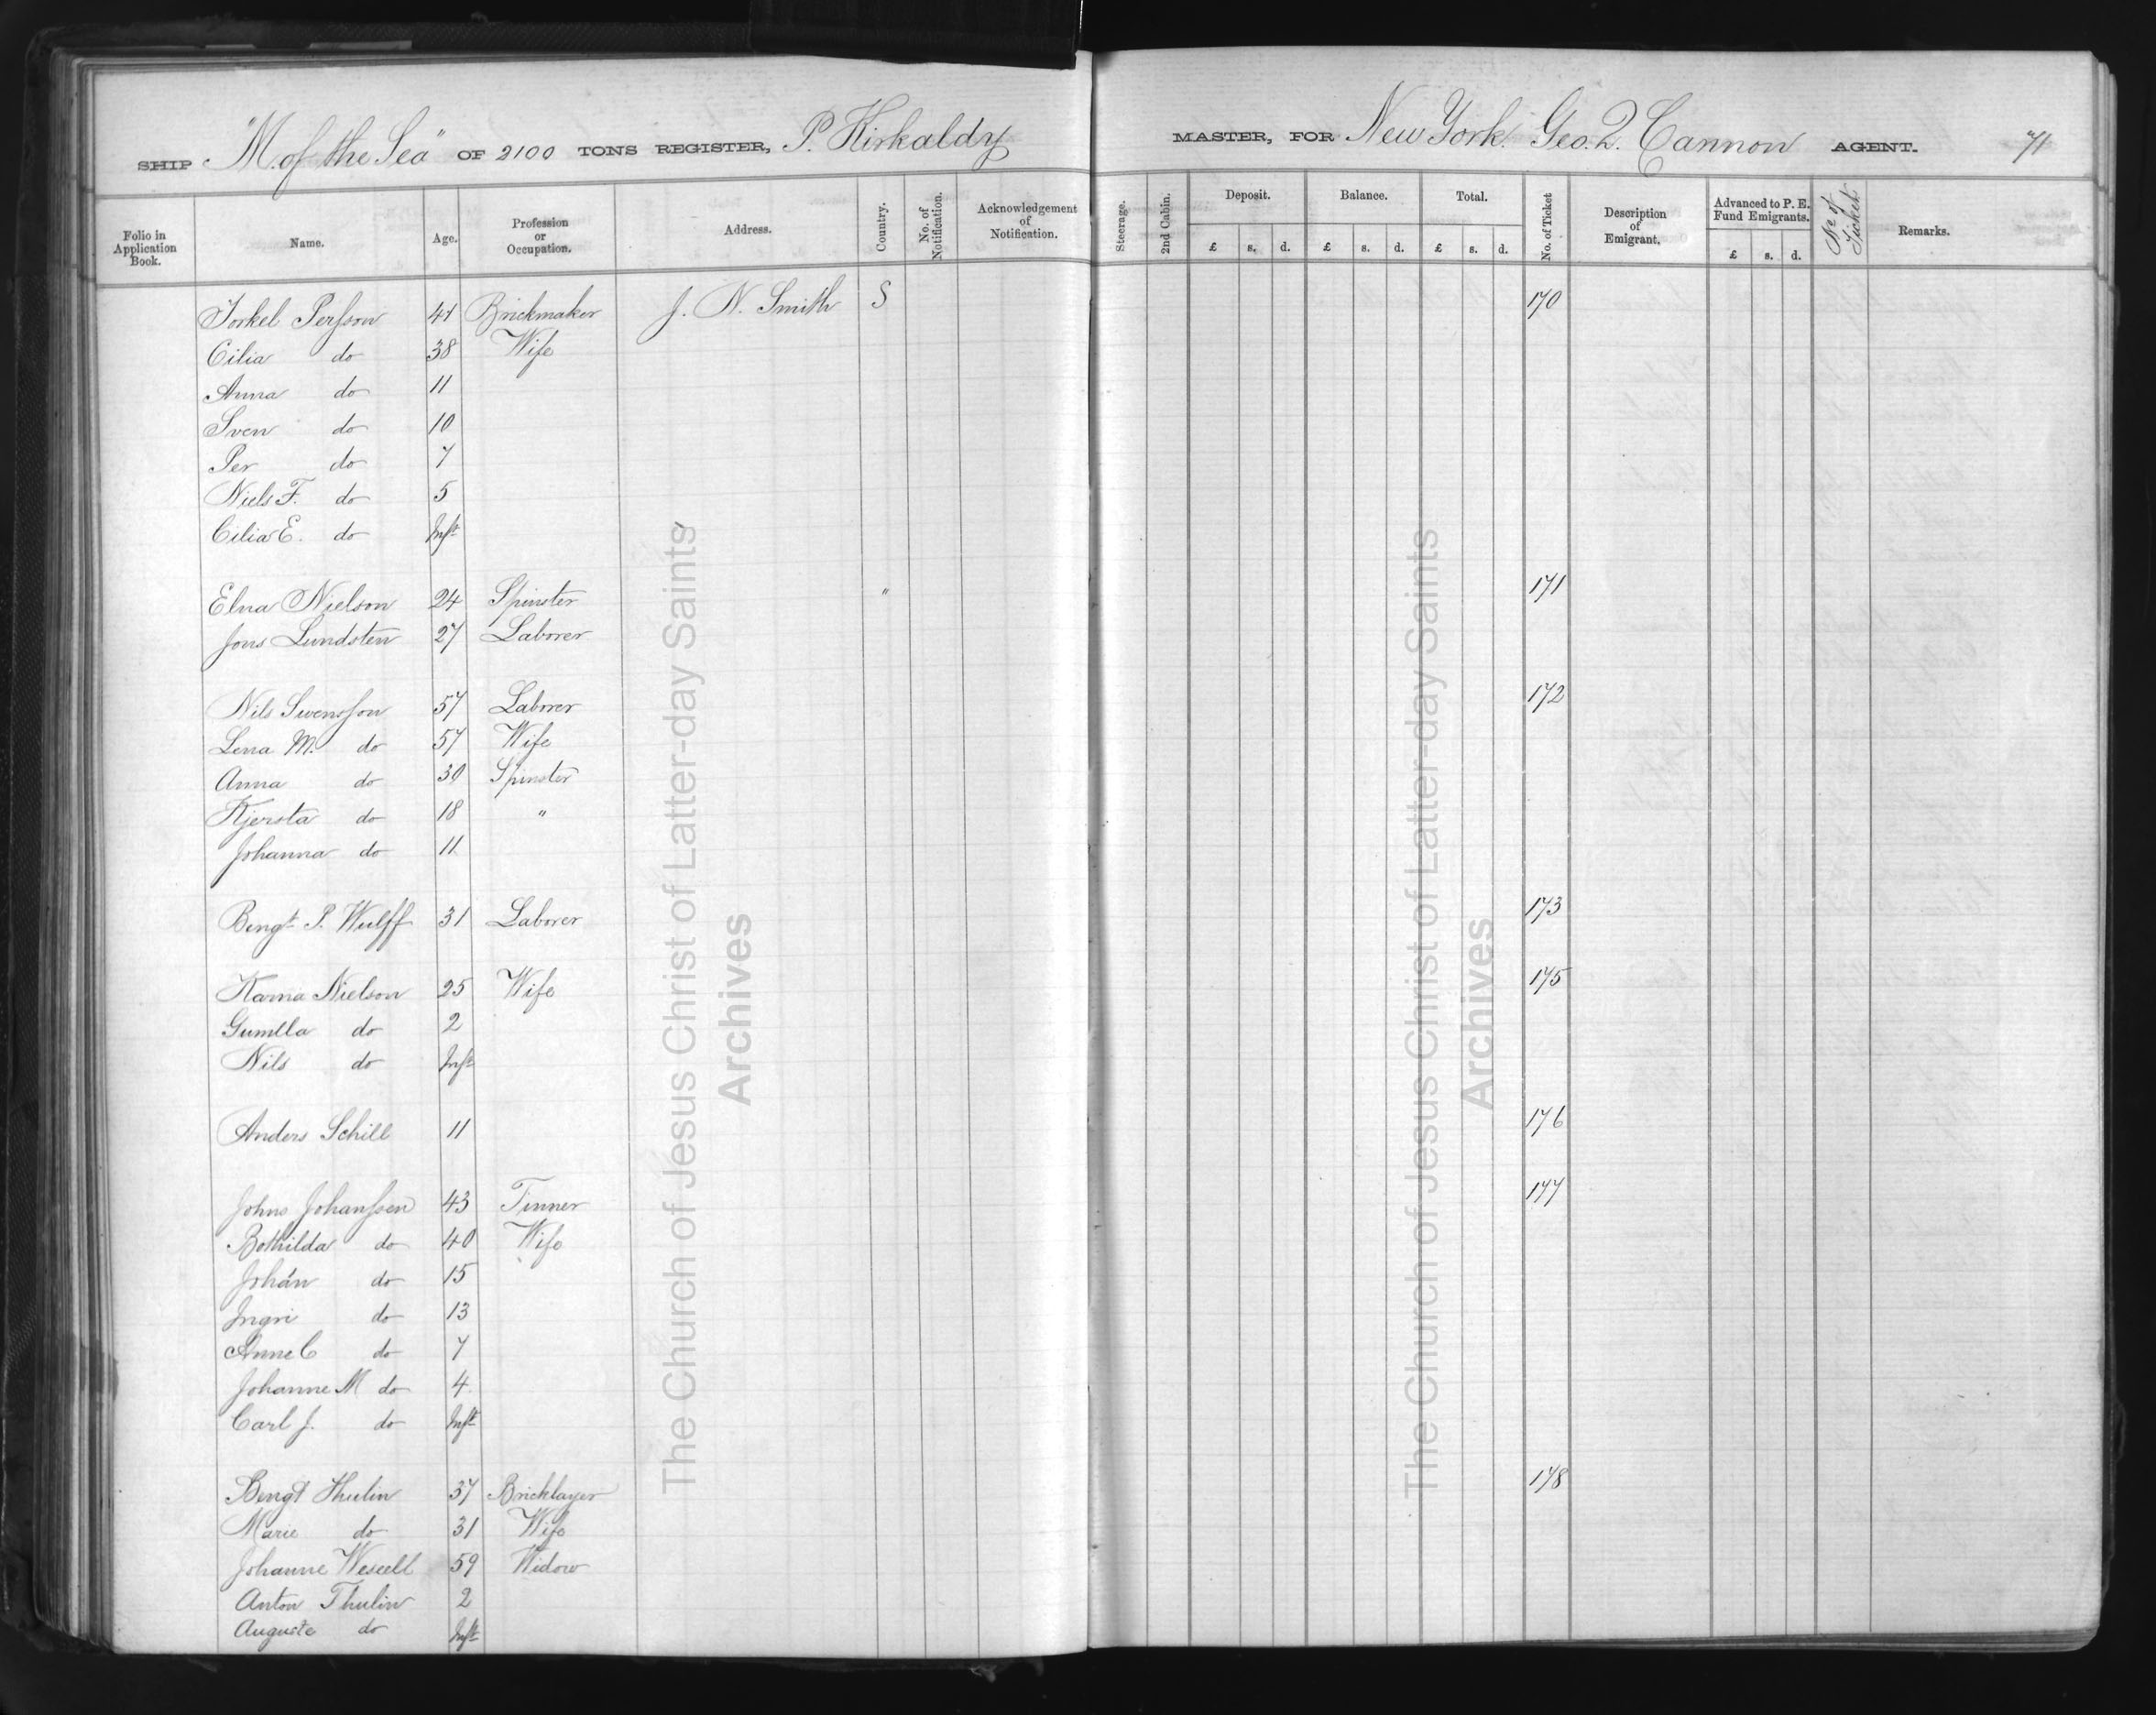 SHIP "M. of the Sea" OF 2100 TONS REGISTER, P. Kirkaldy MASTER, FOR New York. Geo. Q. Cannon AGENT. 71
Folio in Application Book. Name. Age. Profession or Occupation. Address. Country. No. of Notification. Acknowledgement of Notification. Steerage. 2nd Cabin. Deposit. Balance. Total. No. of Ticket Description of Emigrant. Advanced to P. E. Fund Emigrants. No of Ticket Remarks.
£ s. d. £ s. d. £ s. d. £ s. d.
Torkel Persson 41 Brickmaker J. N. Smith S 170
Cilia do 38 Wife
Anna do 11
Sven do 10
Per do 7
Niels F. do 5
Cilia E. do Inft
Elna Nielson 24 Spinster " 171
Jons Lundsten 27 Laborer
Nils Swensson 57 Laborer 172
Lena M. do 57 Wife
Anna do 30 Spinster
Kjersta do 18 "
Johanna do 11
Bengt P. Wulff 31 Laborer 173
Karna Nielson 25 Wife 175
Gunilla do 2
Nils do Inft
Anders Schill 11 176
Johns Johanssen 43 Tinner 177
Bothilda do 40 Wife
Johan do 15
Ingri do 13
Anne C do 7
Johanne M do 4
Carl J. do Inft
Bengt Thulin 37 Bricklayer 178
Marie do 31 Wife
Johanne Wesell 59 Widow
Anton Thulin 2
Auguste do Inft
The Church of Jesus Christ of Latter-day Saints
Archives
The Church of Jesus Christ of Latter-day Saints
Archives